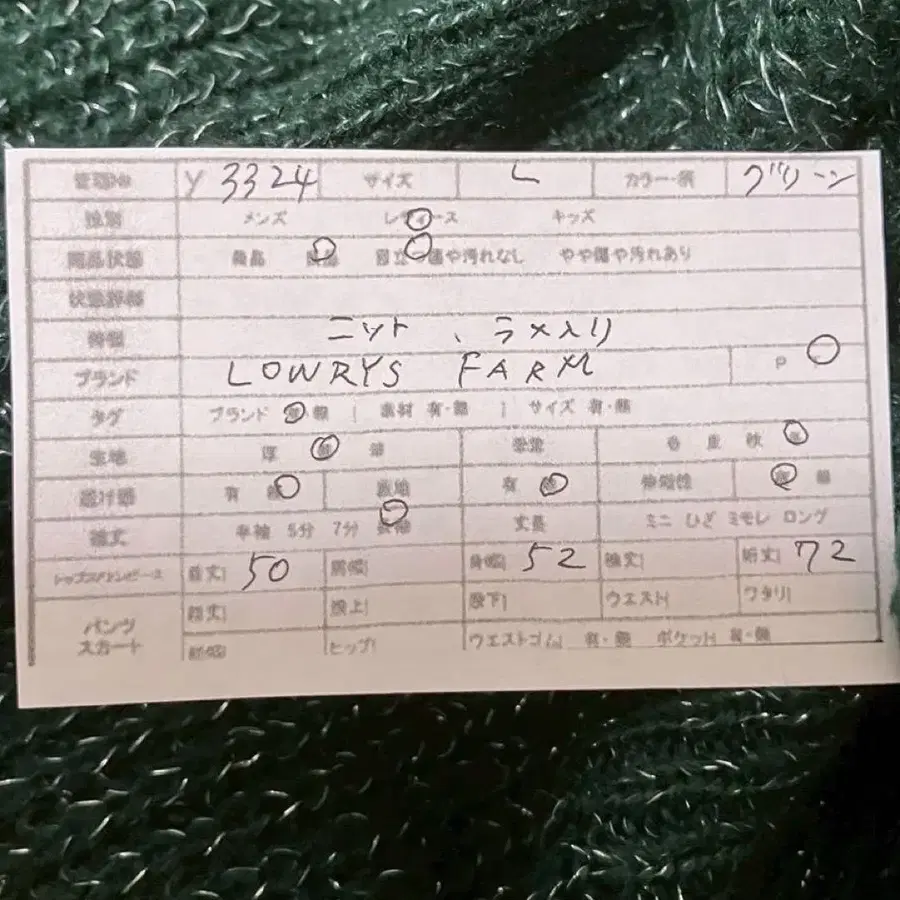 管理No Y 3324 サイズ L カラー・柄 グリーン
性別 メンズ レディース キッズ
商品状態 美品 良品 目立つ傷や汚れなし やや傷や汚れあり
状態詳細
特徴 ニット、ラメ入り
ブランド LOWRYS FARM P
タグ ブランド 有・無 | 素材 有・無 | サイズ 有・無
生地 厚 薄 春 夏 秋 冬
透け感 有 無 裏地 有 無 伸縮性 有 無
袖丈 半袖 5分 7分 長袖 丈長 ミニ ひざ ミモレ ロング
トップス/ワンピース 着丈 50 肩幅 身幅 52 袖丈 裄丈 72
パンツ スカート 総丈 股上 股下 ウエスト ワタリ
裾幅 ヒップ ウエストゴム 有・無 ポケット 有・無